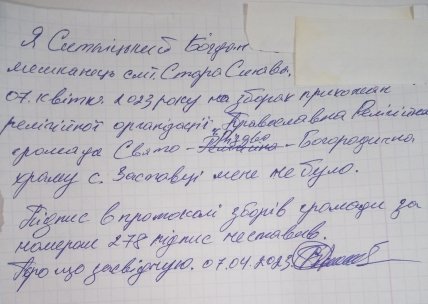 Я Ситніцький Богдан
мешканець смт. Стара Синава,
07. квітня. 2023 року на зборах прихожан
релігійної організації "Православна Релігійна
громада Свято - Різдво - Богородична
храму с. Заставці мене не було.
Підпис в протоколі зборів громади за
номером 278 підпис не ставив.
Про що засвідчую. 07.04.2023